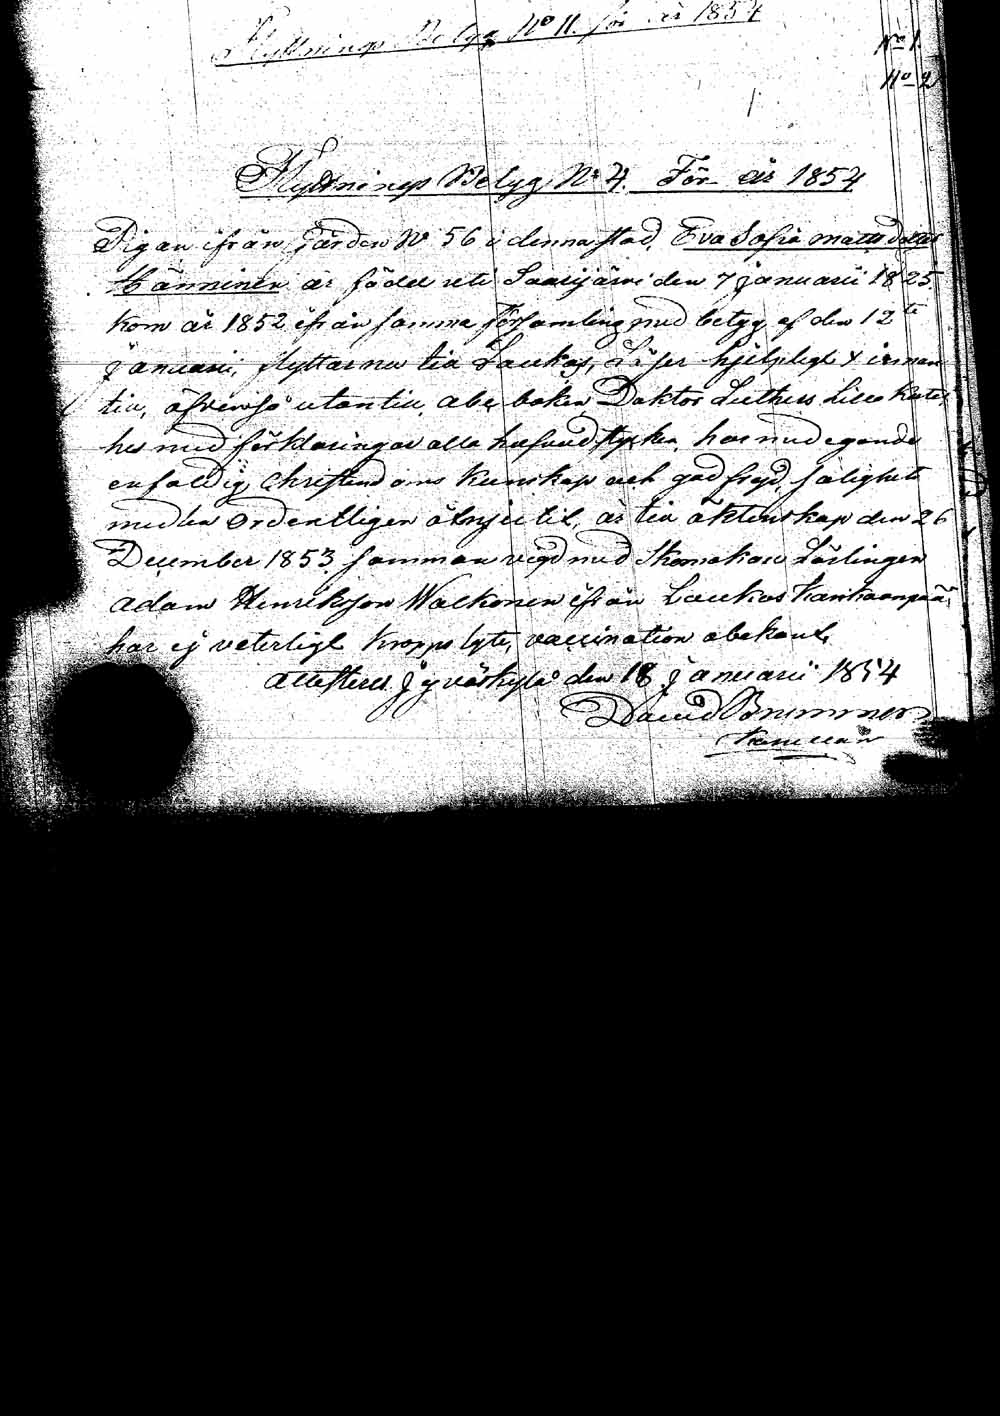 Flyttnings Betyg No 11. för år 1854
No 1.
No 2
Flyttnings Betyg No 4. För år 1854
Pigan ifrån gården No 56 i denna stad, Eva Sofia Matts dotter
Hänninen är född uti Saarijärvi den 7 januarii 1825,
kom år 1852 ifrån samma församling med betyg af den 12te
januarii, flyttar nu till Laukas, Läser hjelpligt innan
till, äfvenså utan till abc boken Doktor Luthers Lilla Kate,
hes med förklaringar alla hufvudstycken, har med egande
enfaldig Christendoms kunskap och god frejd, salighets
medlen ordentligen åtnjutit, är till äktenskap den 26
December 1853 samman vigd med Skomakare Lärlingen
Adam Henriksson Walkonen ifrån Laukas Kankaanpää,
har ej veterligt kropps lyte, vaccination obekant,
attesteras Jyväskylä den 18 januarii 1854
David Brummer